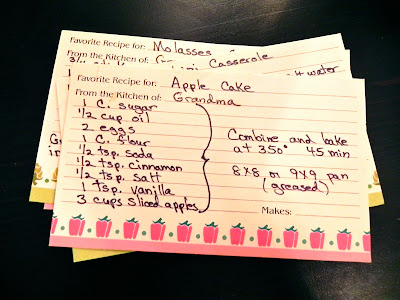 Favorite Recipe for: Molasses
From the Kitchen of: Casserole
water
Favorite Recipe for: Apple Cake
From the Kitchen of: Grandma
1 C. sugar
1/2 cup oil
2 eggs
1 C. flour
1/2 tsp. soda
1/2 tsp. cinnamon
1/2 tsp. salt
1 tsp. vanilla
3 cups sliced apples
Combine and bake
at 350° 45 min
8x8 or 9x9 pan
(greased)
Makes: